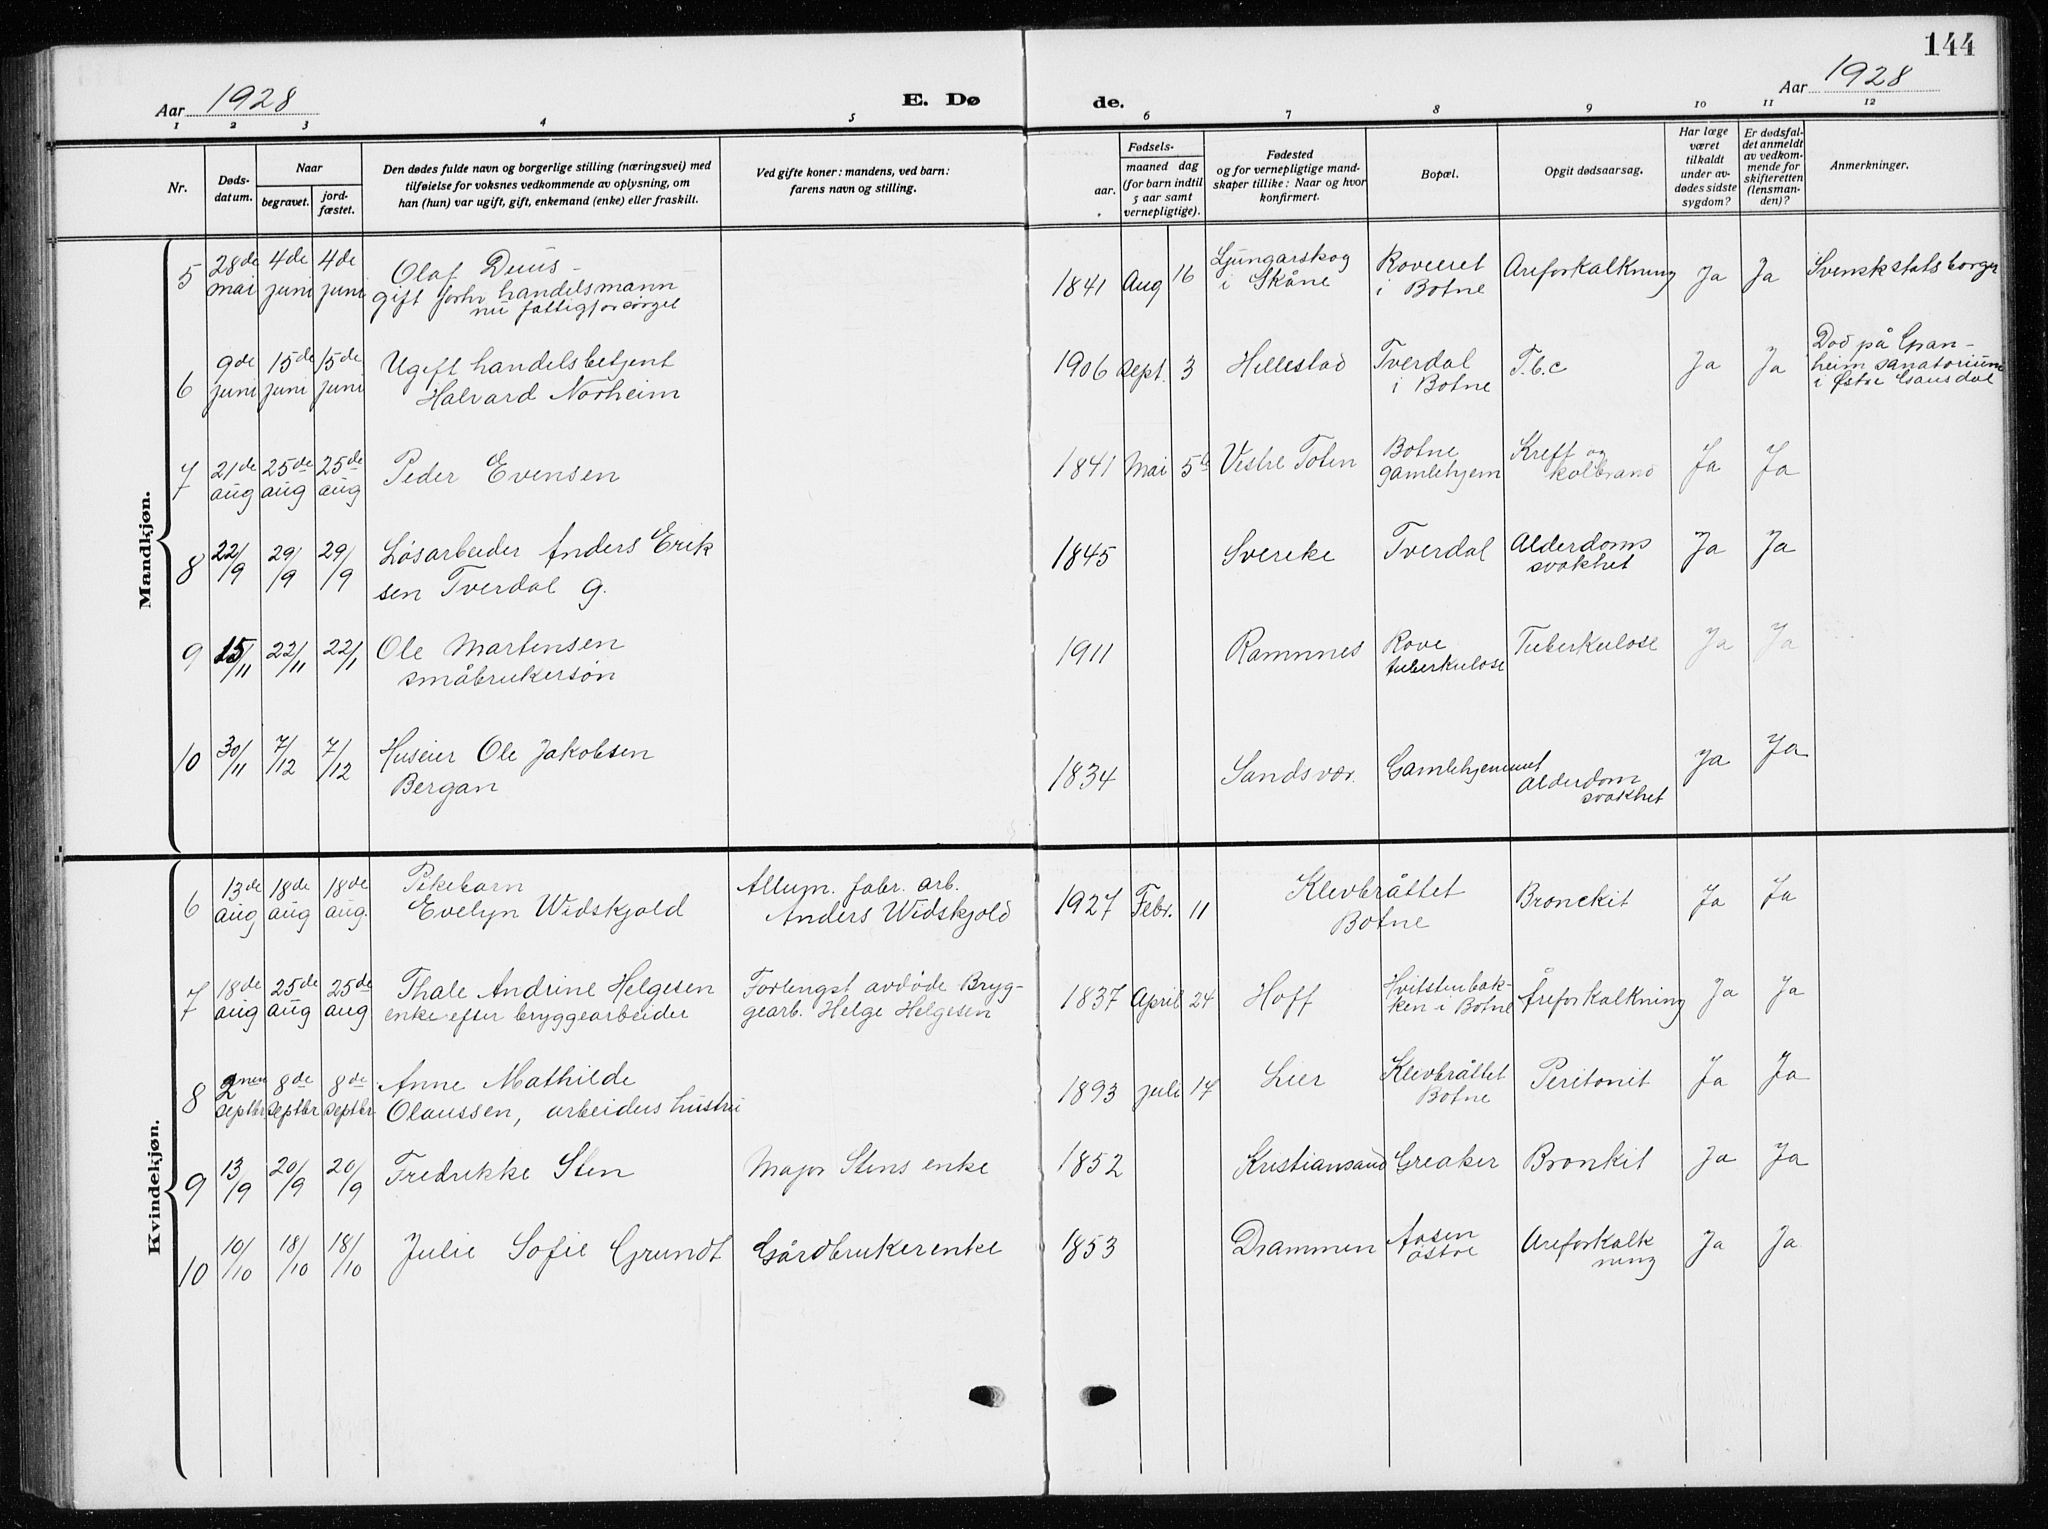 144
Aar 1928
E. Dø
de.
Aar 1928
1 2 3 4 5 6 7 8 9 10 11 12
Nr.
Døds-
datum.
Naar
begravet.
jord-
fæstet.
Den dødes fulde navn og borgerlige stilling (næringsvei) med
tilføielse for voksnes vedkommende av oplysning, om
han (hun) var ugift, gift, enkemand (enke) eller fraskilt.
Ved gifte koner: mandens, ved barn:
farens navn og stilling.
Fødsels-
aar.
maaned dag
(for barn indtil
5 aar samt
vernepligtige).
Fødested
og for vernepligtige mand-
skaper tillike: Naar og hvor
konfirmert.
Bopæl.
Opgit dødsaarsag.
Har læge
været
tilkaldt
under av-
dødes sidste
sygdom?
Er dødsfal-
det anmeldt
av vedkom-
mende for
skifteretten
(lensman-
den)?
Anmerkninger.
Mandkjøn.
5 28de mai 4de juni 4de juni
Olaf Duus -
gift forhv handelsmann
nu fattigforsørget
1841 Aug 16
Ljungarskog
i Skåne
Roveeret
i Botne
Areforkalkning
Ja Ja
Svensk statsborger
6 9de juni 15de juni 15de juni
Ugift handelsbetjent
Halvard Norheim
1906 Sept. 3 Hillestad
Tverdal
i Botne
T.b.c
Ja Ja
Død på Gran-
heim sanatorium
i Østre Gausdal
7 21de aug 25de aug 25de aug
Peder Evensen
1841 Mai 5te Vestre Toten
Botne
gamlehjem
Kreft og
kolbrand
Ja Ja
8 22/9 29/9 29/9
Løsarbeider Anders Erik
sen Tverdal g.
1845 Sverike Tverdal
Alderdoms
svakhet
Ja Ja
9 15/11 22/11 22/11
Ole Martensen
småbrukersøn
1911 Ramnnes
Rove
tuberkulose
Tuberkulose
Ja Ja
10 30/11 7/12 7/12
Huseier Ole Jakobsen
Bergan
1834 Sandsvær. Gamlehjemmet
Alderdom
svakhet
Ja Ja
Kvindekjøn.
6 13de aug 18de aug 18de aug.
Pikebarn
Evelyn Widskjold
Allum. fabr. arb.
Anders Widskjold
1927 Febr. 11
Klevbråttet
Botne
Bronckit
Ja Ja
7 18de aug 25de aug 25de aug
Thale Andrine Helgesen
enke efter bryggearbeider
Forlengst avdøde Bryg-
gearb. Helge Helgesen
1837 April 24 Hoff
Hvitstenbak-
ken i Botne
Åreforkalkning
Ja Ja
8 2nen septbr 8de septbr 8de septbr
Anne Mathilde
Olaussen, arbeiders hustru
1893 juli 14 Lier
Klevbråttet
Botne
Peritonit
Ja Ja
9 13/9 20/9 20/9
Fredrikke Sten
Major Stens enke
1852 Kristiansand Greaker Bronkit
Ja Ja
10 10/10 18/10 18/10
Julie Sofie Grundt
Gårdbrukerenke
1853 Drammen
Aasen
østre
Areforkalk
ning
Ja Ja